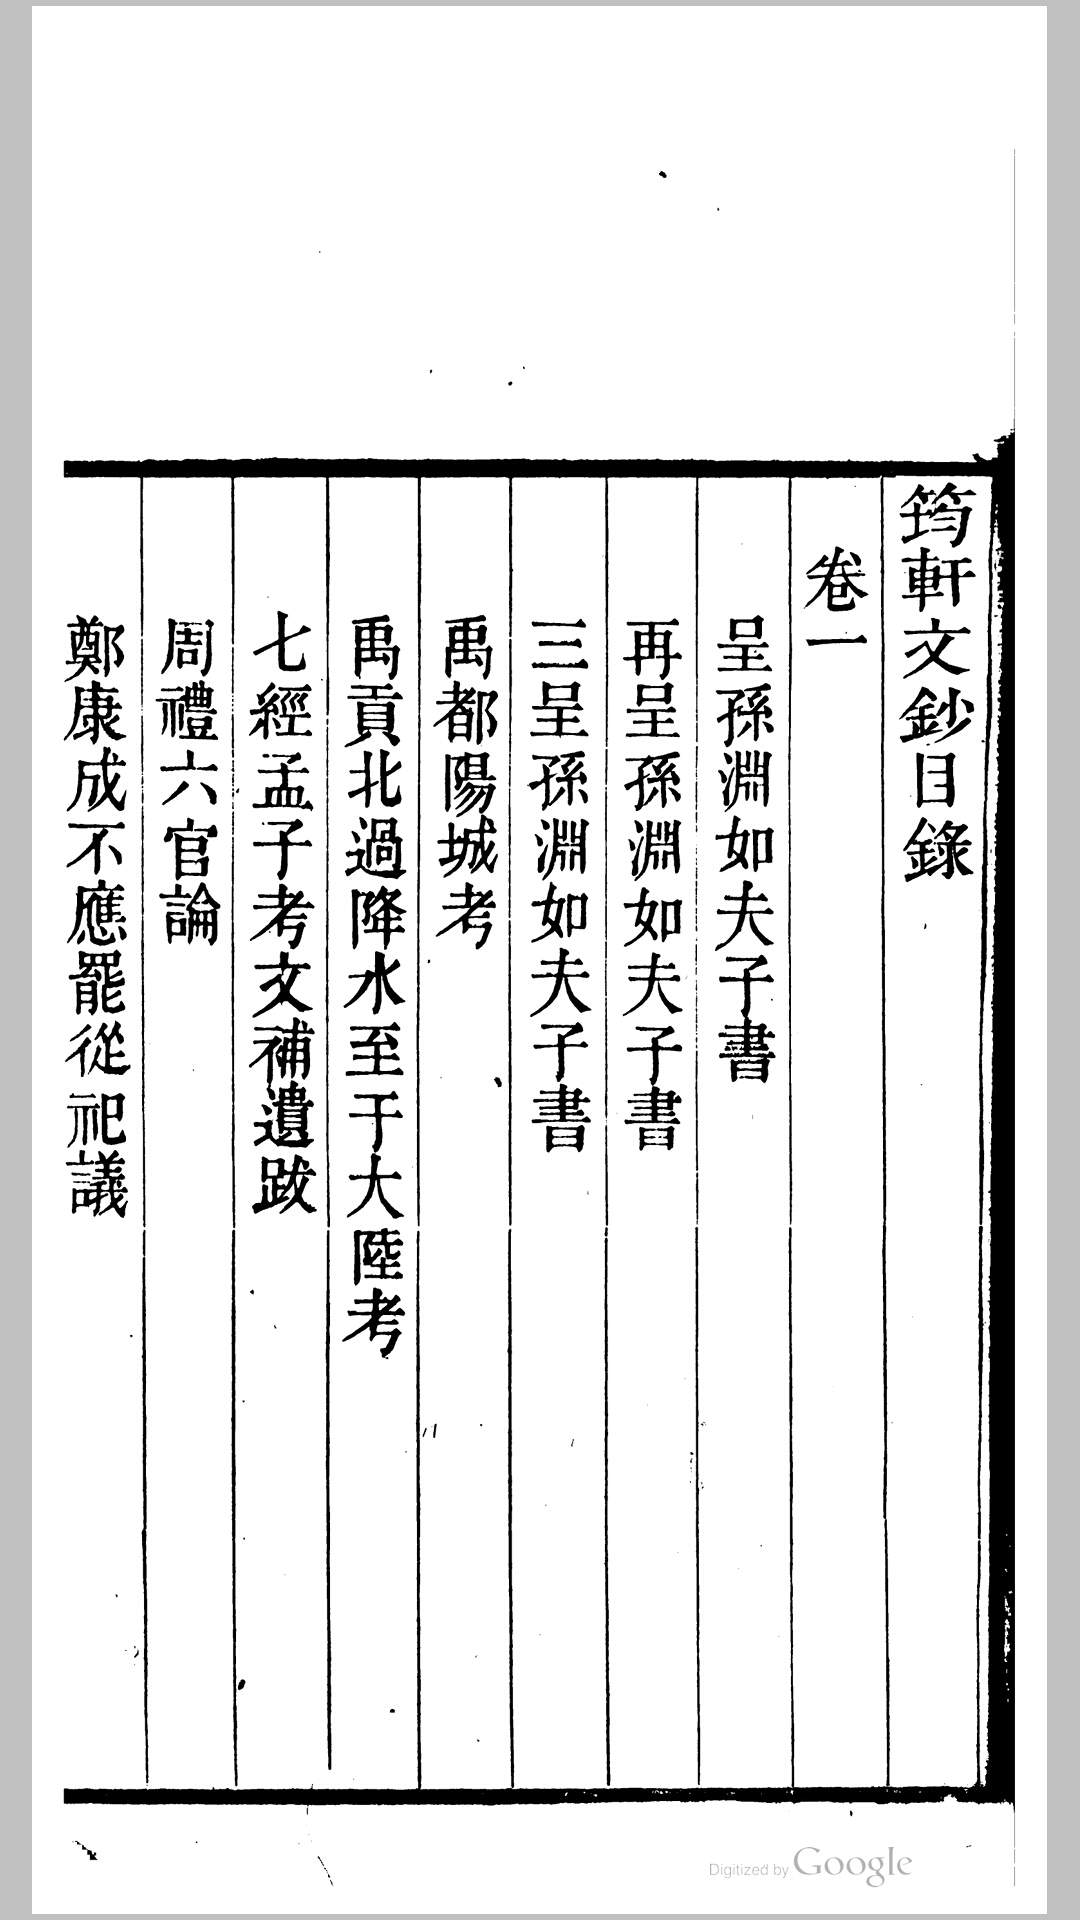 筠軒文鈔目錄
卷一
呈孫淵如夫子書
再呈孫淵如夫子書
三呈孫淵如夫子書
禹都陽城考
禹貢北過降水至于大陸考
七經孟子考文補遺跋
周禮六官論
鄭康成不應罷從祀議
Digitized by Google